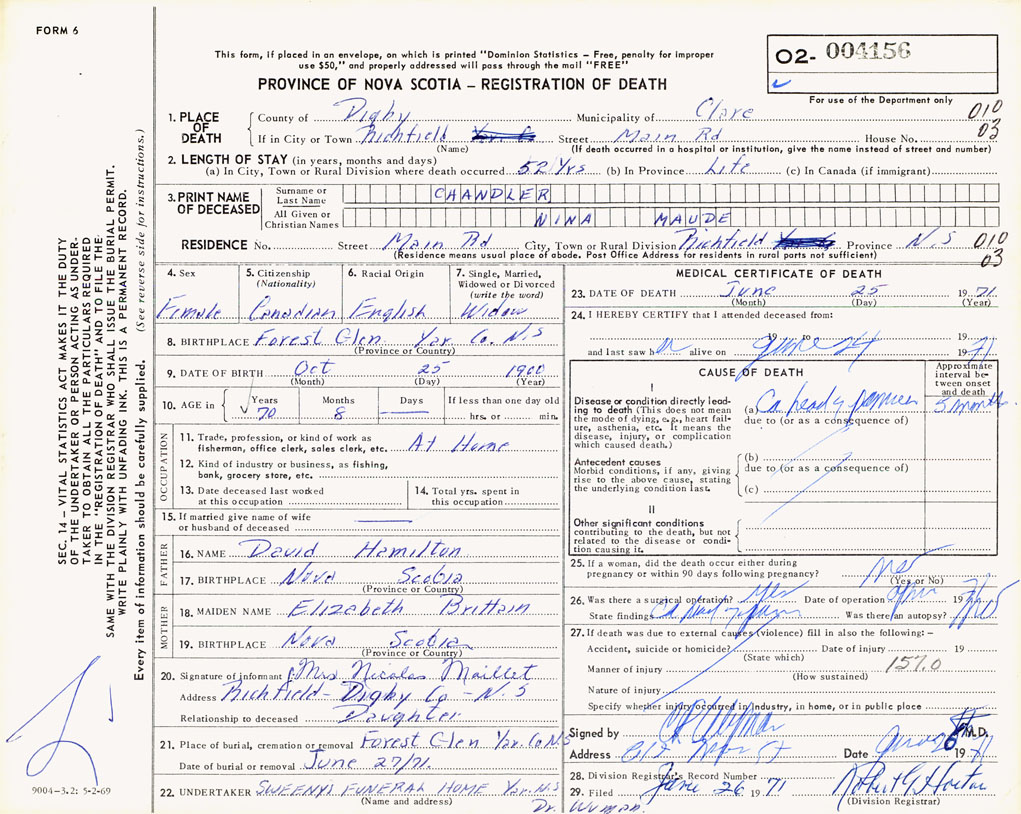 FORM 6
This form, if placed in an envelope, on which is printed "Dominion Statistics – Free, penalty for improper
use $50," and properly addressed will pass through the mail "FREE"
O2- 004156
PROVINCE OF NOVA SCOTIA – REGISTRATION OF DEATH
For use of the Department only
1. PLACE OF DEATH
County of Digby Municipality of Clare 010
If in City or Town Richfield Street Main Rd House No. 03
(Name) (If death occurred in a hospital or institution, give the name instead of street and number)
2. LENGTH OF STAY (in years, months and days)
(a) In City, Town or Rural Division where death occurred 52 Yrs (b) In Province Life (c) In Canada (if immigrant)
3. PRINT NAME OF DECEASED
Surname or Last Name CHANDLER
All Given or Christian Names NINA MAUDE
RESIDENCE No. Street Main Rd City, Town or Rural Division Richfield Province N.S 010
(Residence means usual place of abode. Post Office Address for residents in rural parts not sufficient) 03
4. Sex
Female
5. Citizenship (Nationality)
Canadian
6. Racial Origin
English
7. Single, Married, Widowed or Divorced (write the word)
Widow
8. BIRTHPLACE Forest Glen Yar. Co. N.S
(Province or Country)
9. DATE OF BIRTH Oct 25 1900
(Month) (Day) (Year)
10. AGE in Years 70 Months 8 Days If less than one day old hrs. or min.
OCCUPATION
11. Trade, profession, or kind of work as fisherman, office clerk, sales clerk, etc. At Home
12. Kind of industry or business, as fishing, bank, grocery store, etc.
13. Date deceased last worked at this occupation
14. Total yrs. spent in this occupation
15. If married give name of wife or husband of deceased
FATHER
16. NAME David Hamilton
17. BIRTHPLACE Nova Scotia
(Province or Country)
MOTHER
18. MAIDEN NAME Elizabeth Brittain
19. BIRTHPLACE Nova Scotia
(Province or Country)
20. Signature of informant Mrs Nicolas Maillet
Address Richfield – Digby Co – N.S
Relationship to deceased Daughter
21. Place of burial, cremation or removal Forest Glen Yar. Co N.S
Date of burial or removal June 27/71.
22. UNDERTAKER SWEENYS FUNERAL HOME Yar. N.S
(Name and address)
MEDICAL CERTIFICATE OF DEATH
23. DATE OF DEATH June 25 1971
(Month) (Day) (Year)
24. I HEREBY CERTIFY that I attended deceased from:
19 to 19
and last saw h alive on June 24 1971
CAUSE OF DEATH
Approximate interval between onset and death
I
Disease or condition directly leading to death (This does not mean the mode of dying, e.g., heart failure, asthenia, etc. It means the disease, injury, or complication which caused death.)
(a) Ca head of pancreas 5 months
due to (or as a consequence of)
Antecedent causes
Morbid conditions, if any, giving rise to the above cause, stating the underlying condition last.
(b)
due to (or as a consequence of)
(c)
II
Other significant conditions contributing to the death, but not related to the disease or condition causing it.
25. If a woman, did the death occur either during pregnancy or within 90 days following pregnancy? No
(Yes or No)
26. Was there a surgical operation? Yes Date of operation 1971
State findings Ca head of Was there an autopsy? No
27. If death was due to external causes (violence) fill in also the following: –
Accident, suicide or homicide? Date of injury 19
(State which)
Manner of injury 157.0
(How sustained)
Nature of injury
Specify whether injury occurred in Industry, in home, or in public place
Signed by M.D.
Address Date 1971
28. Division Registrar's Record Number
29. Filed June 26 1971
(Division Registrar)
Dr. Wyman.
SEC. 14 – VITAL STATISTICS ACT MAKES IT THE DUTY
OF THE UNDERTAKER OR PERSON ACTING AS UNDER-
TAKER TO OBTAIN ALL THE PARTICULARS REQUIRED
IN THE "REGISTRATION OF DEATH" AND TO FILE THE
SAME WITH THE DIVISION REGISTRAR WHO SHALL ISSUE THE BURIAL PERMIT.
WRITE PLAINLY WITH UNFADING INK. THIS IS A PERMANENT RECORD.
Every item of information should be carefully supplied. (See reverse side for instructions.)
9004-3.2: 5-2-69